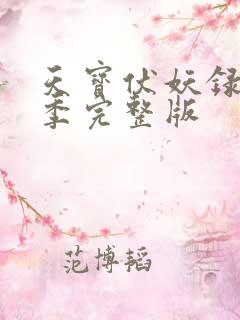 天寶伏妖録
季完整版
范博韬